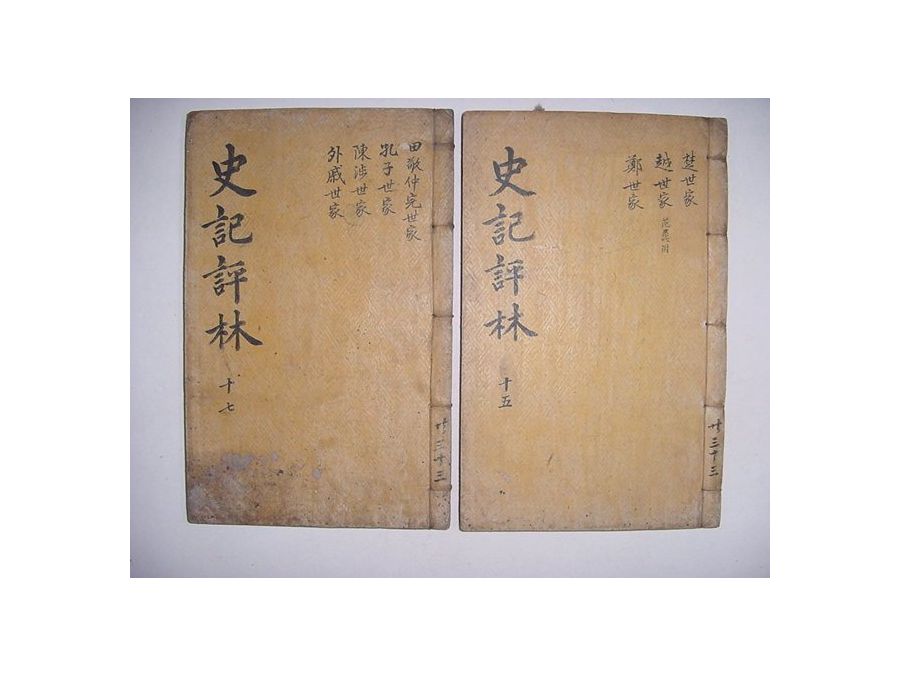 史記評林
十七
田敬仲完世家
孔子世家
陳涉世家
外戚世家
共三十三
史記評林
十五
楚世家
越世家 范蠡附
鄭世家
共三十三